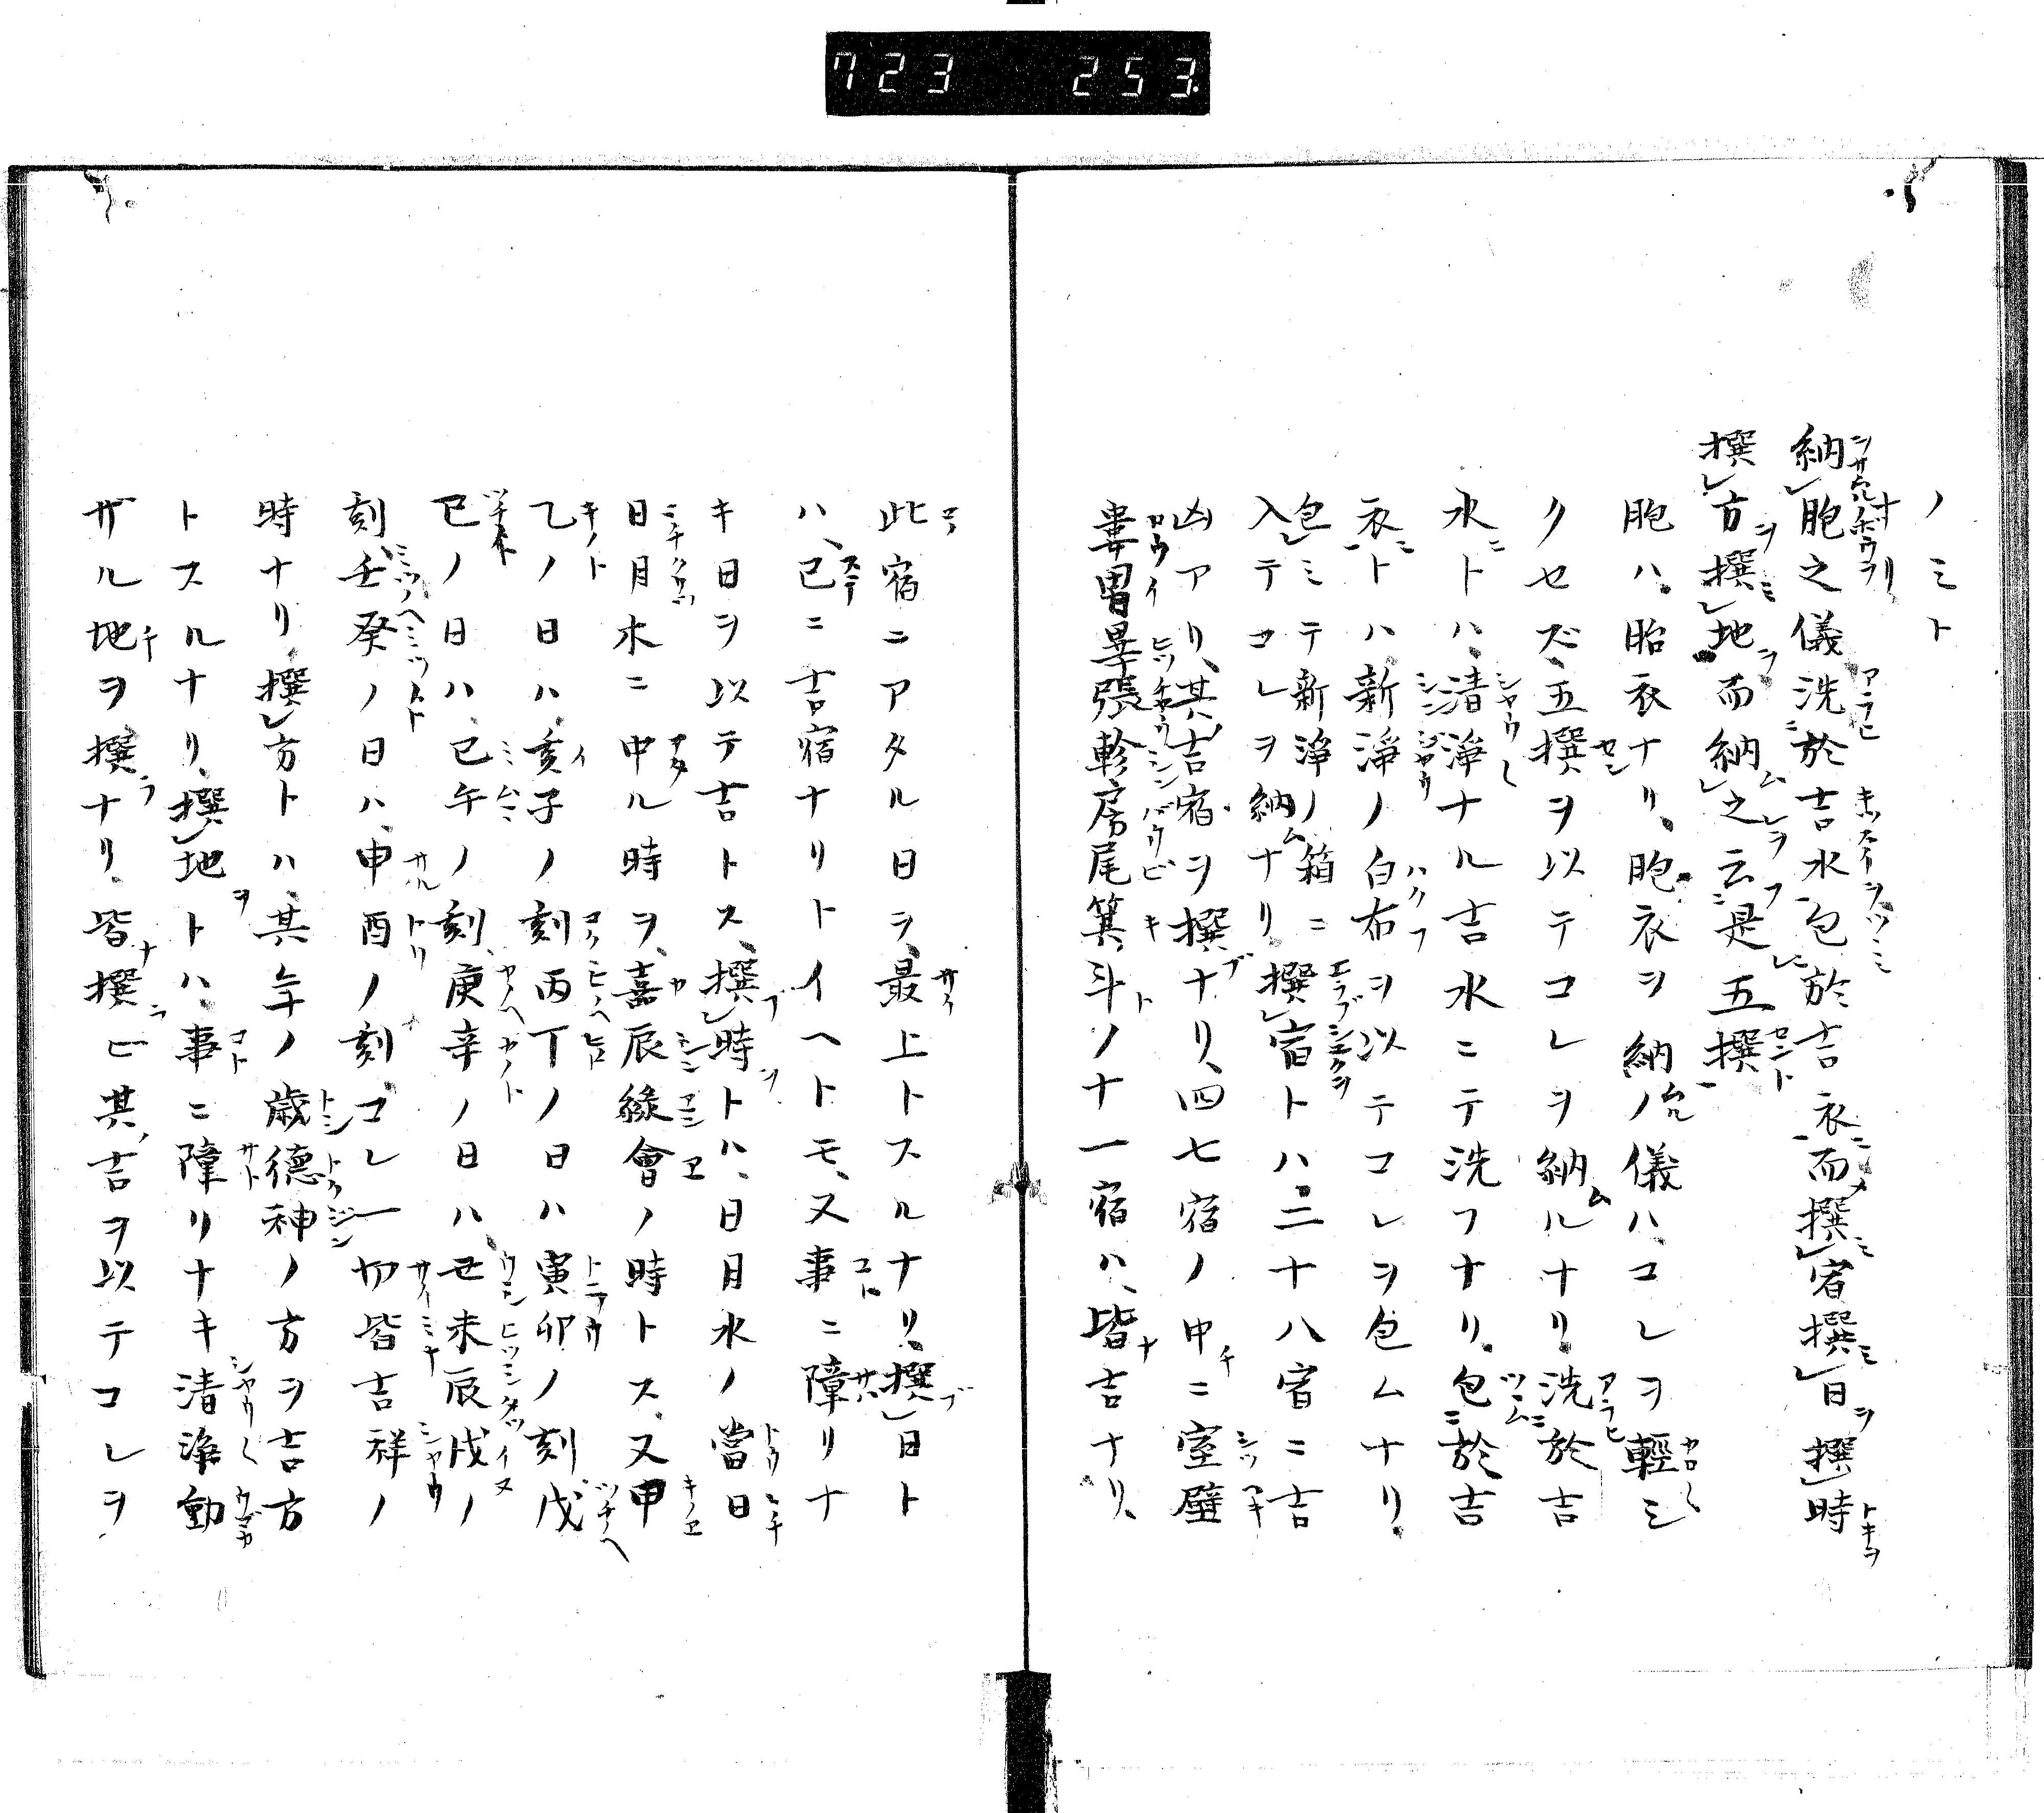 723 253
ノミト
納胞之儀洗於吉水包於吉衣而撰宿撰日撰時
撰方撰地而納之云是五撰
胞ハ、胎衣ナリ、胞衣ヲ納ノ儀ハ、コレヲ輕シ
クセズ、五撰ヲ以テコレヲ納ルナリ、洗於吉
水トハ、清淨ナル吉水ニテ洗フナリ、包於吉
衣トハ、新淨ノ白布ヲ以テコレヲ包ムナリ、
包ミテ新淨ノ箱ニ
入テコレヲ納ナリ、撰宿トハ、二十八宿ニ吉
凶アリ、其吉宿ヲ撰ナリ、四七宿ノ中ニ室壁
婁胃畢張軫房尾箕斗ノ十一宿ハ、皆吉ナリ、
此宿ニアタル日ヲ、最上トスルナリ、撰日ト
ハ、已ニ吉宿ナリトイヘトモ、又事ニ障リナ
キ日ヲ以テ吉トス、撰時トハ、日月水ノ當日
日月木ニ中ル時ヲ、嘉辰緣會ノ時トス、又甲
乙ノ日ハ、亥子ノ刻丙丁ノ日ハ寅卯ノ刻戊
己ノ日ハ、巳午ノ刻、庚辛ノ日ハ、丑未辰戌ノ
刻、壬癸ノ日ハ、申酉ノ刻、コレ一切皆吉祥ノ
時ナリ、撰方トハ、其年ノ歳德神ノ方ヲ吉方
トスルナリ、撰地トハ、事ニ障リナキ清淨動
ザル地ヲ撰ナリ、皆撰ビ其吉ヲ以テコレヲ